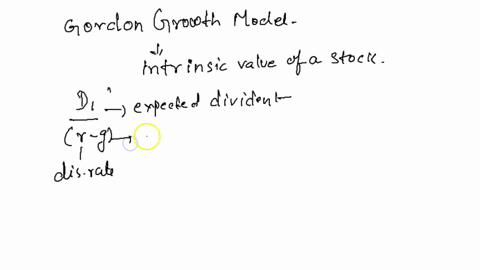 Gordon Growth Model.
↓
intrinsic value of a stock.
D1 → expected divident
(r-g) →
dis.rate